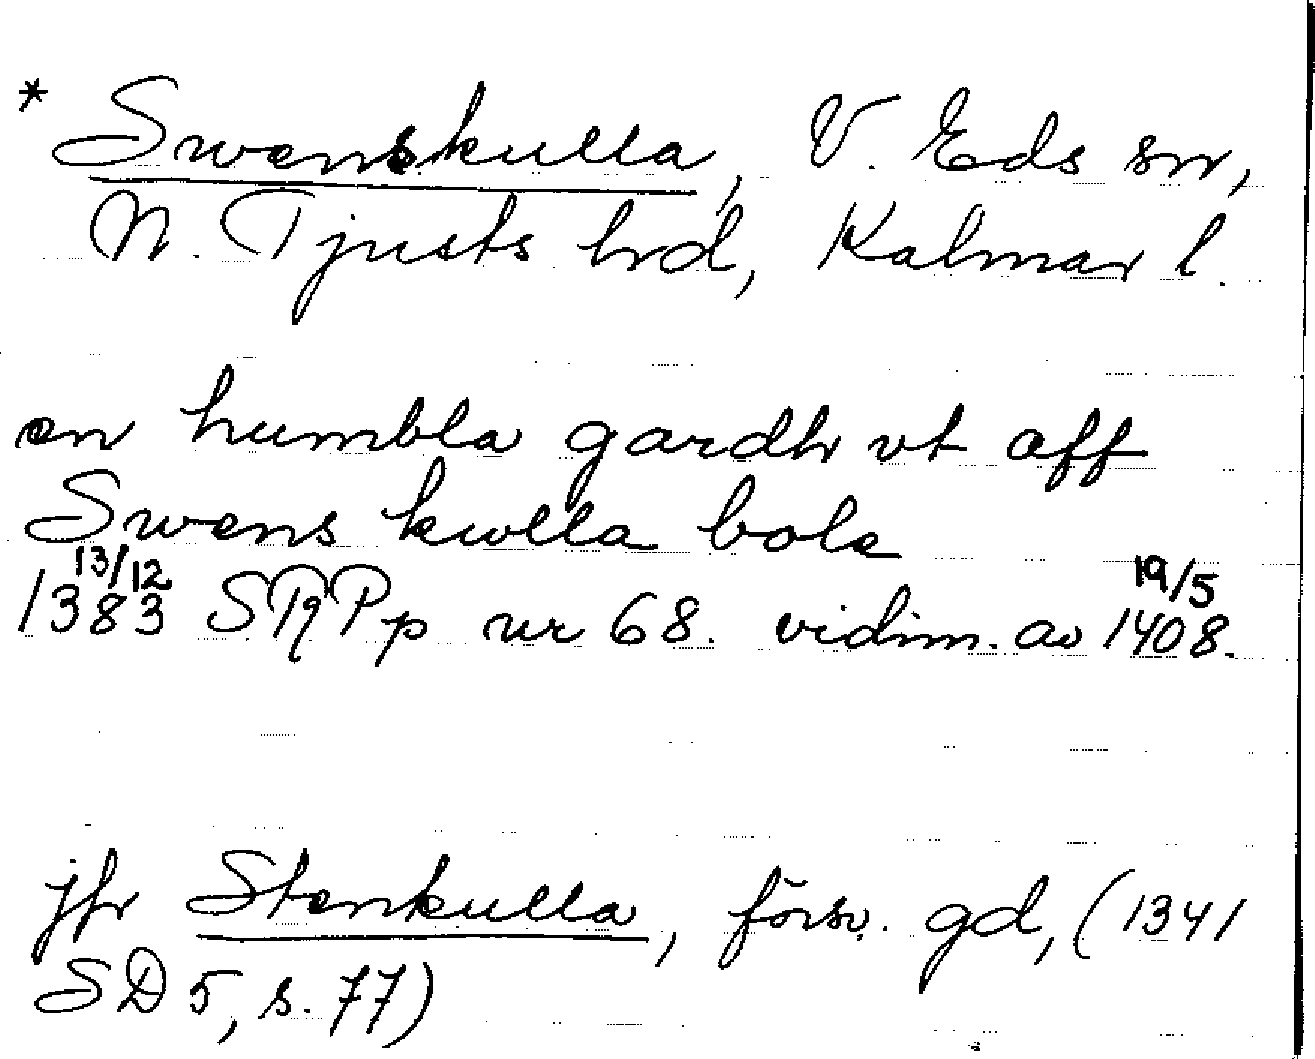 * Swenskulla, V. Eds sn,
N. Tjusts hrd, Kalmar l.
en humbla gardh vt aff
Swens kwlla bole
1383 13/12 SRPp nr 68. vidim. av 1408 19/5.
jfr Stenkulla, försv. gd, (1341
SD 5, s. 77)